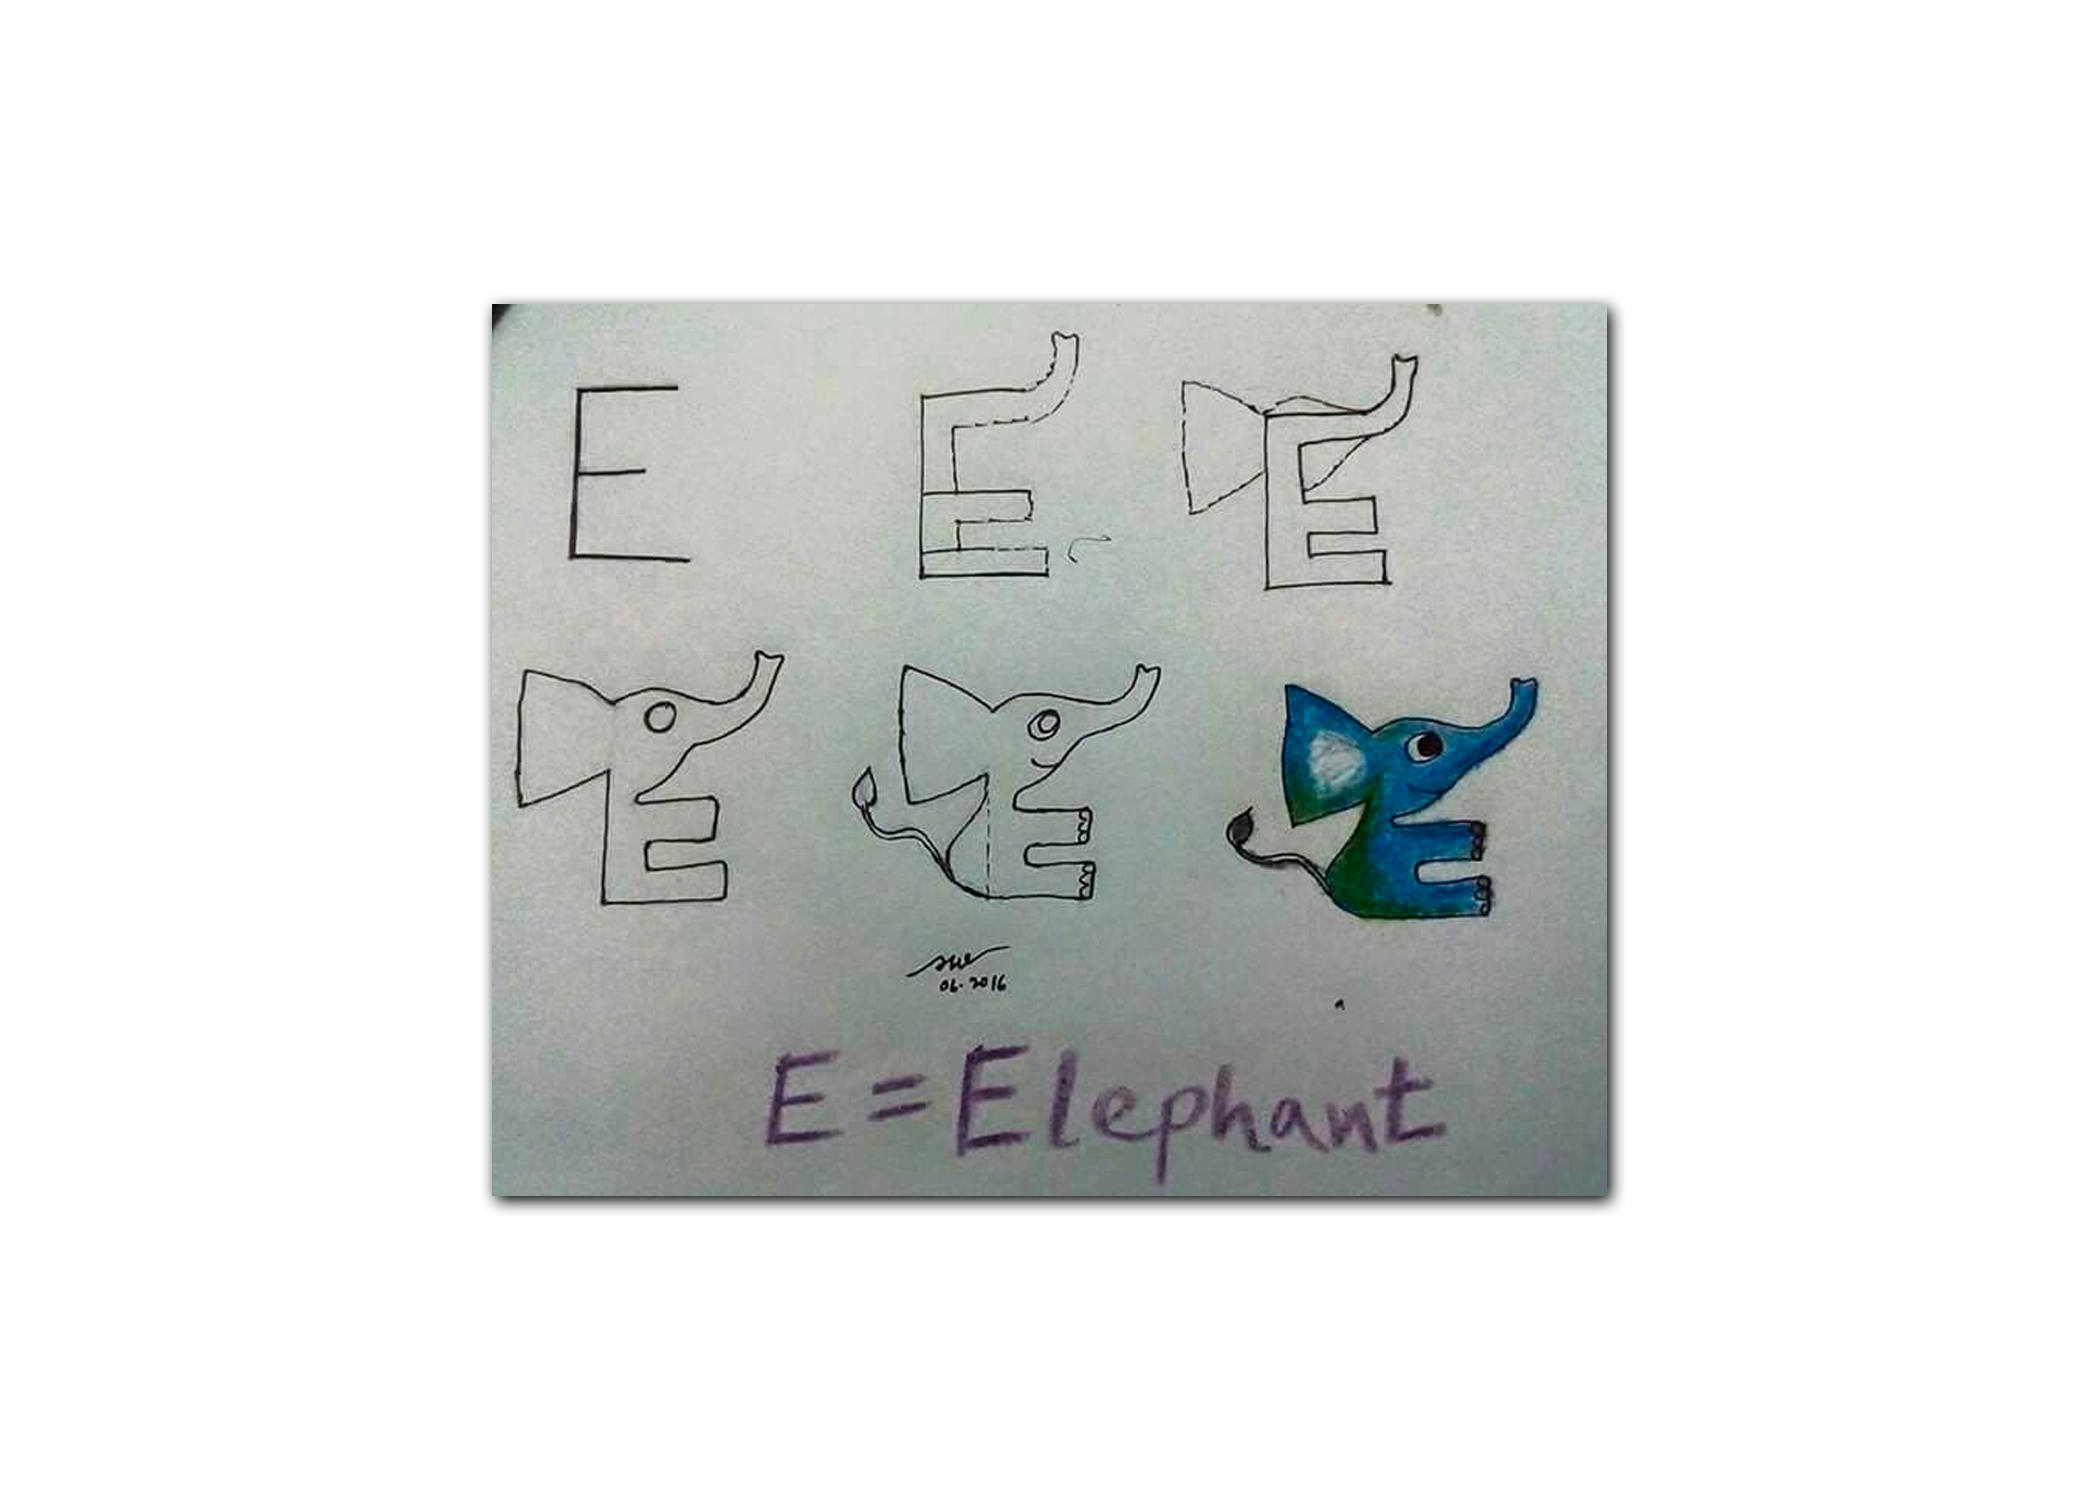 E
sue
06.2016
E = Elephant